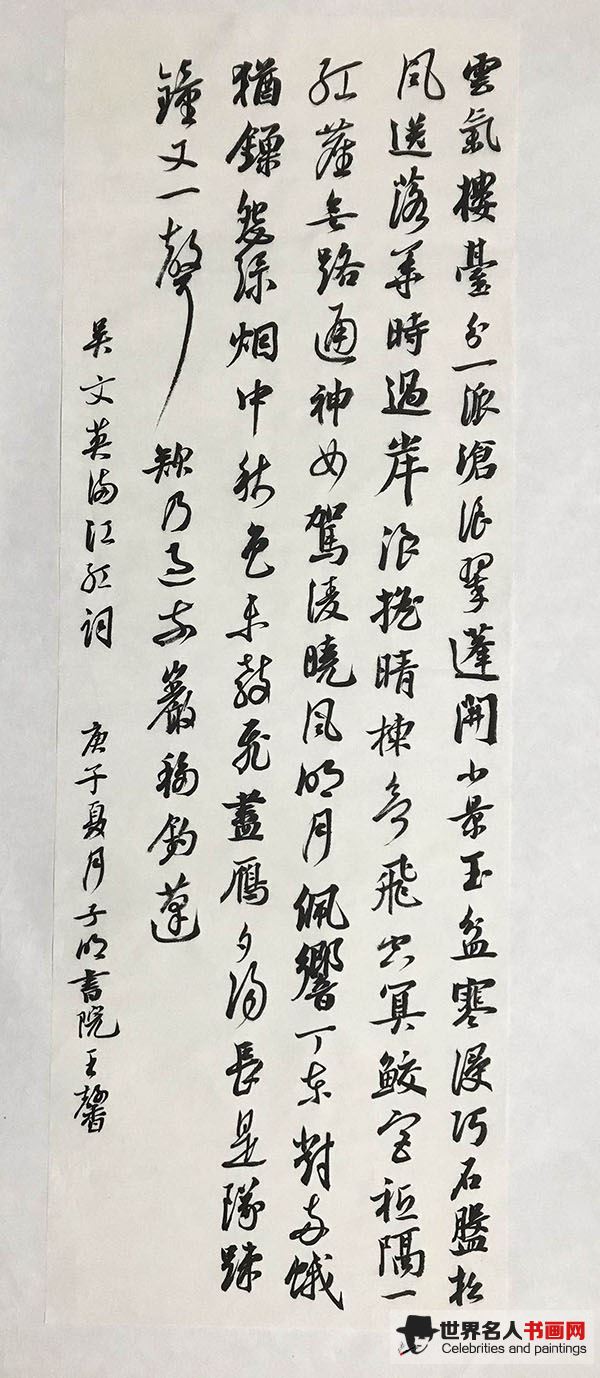 雲氣樓臺分一派滄浪翠蓬開小景玉盆寒浸巧石盤松
風送落華時過岸浪搖晴棟欲飛空算鮫宮祗隔一
紅塵無路通神女駕淩曉風明月佩響丁東對兩蛾
猶鎖怨綠烟中秋色未教飛盡鴈夕陽長是隊疎
鐘又一聲欸乃過前巖移釣蓬
吳文英滿江紅詞 庚子夏月子明書院王馨
世界名人书画网
Celebrities and paintings